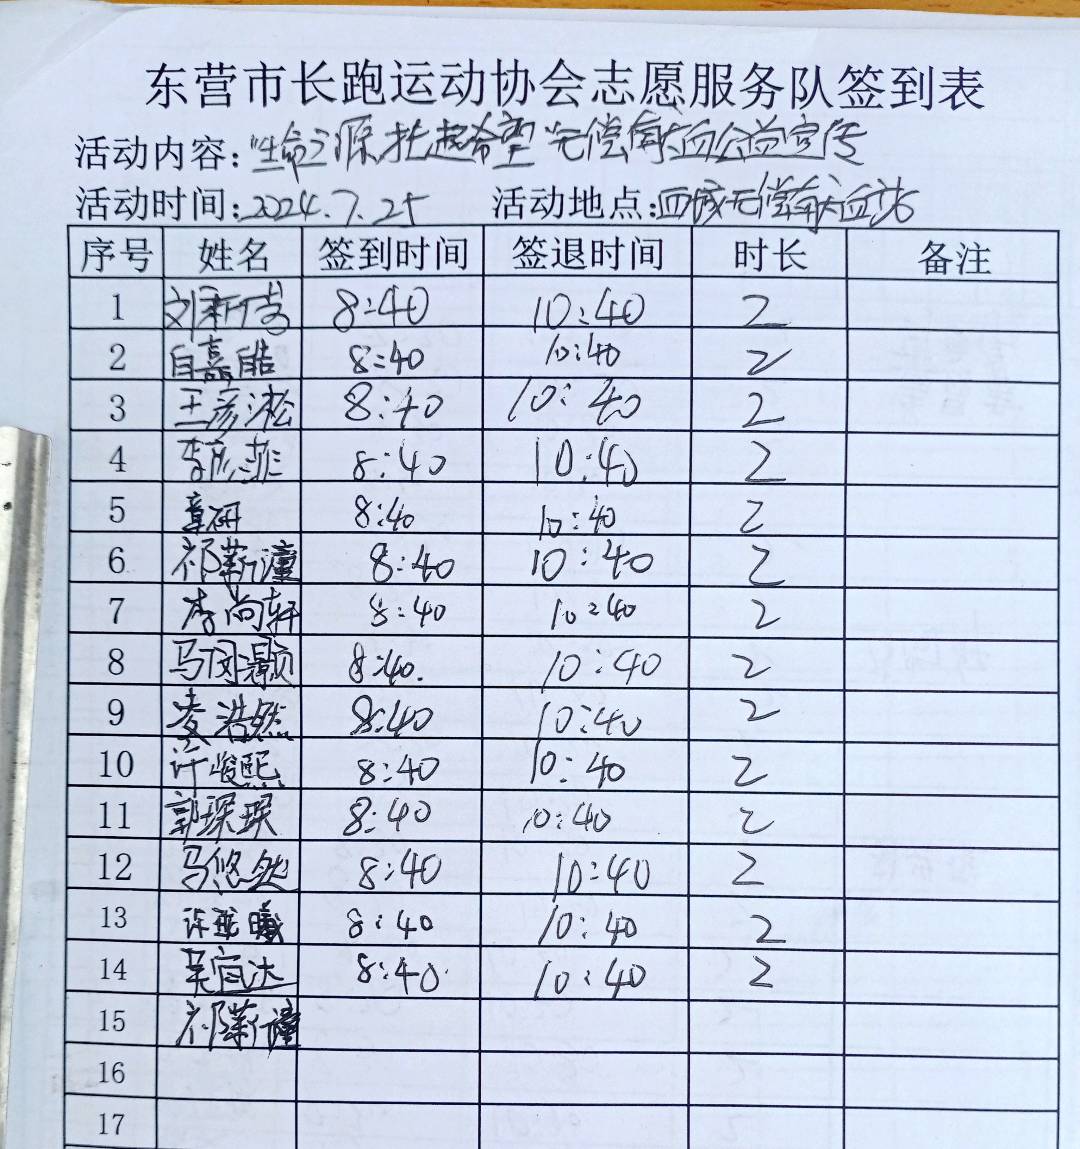 东营市长跑运动协会志愿服务队签到表
活动内容:"生命之源托起希望"无偿献血公益宣传
活动时间:2024.7.25 活动地点:西城无偿献血站
序号 姓名 签到时间 签退时间 时长 备注
1 8:40 10:40 2
2 白嘉皓 8:40 10:40 2
3 王彦淞 8:40 10:40 2
4 李彦菲 8:40 10:40 2
5 章研 8:40 10:40 2
6 祁薪潼 8:40 10:40 2
7 李尚轩 8:40 10:40 2
8 8:40. 10:40 2
9 凌浩然 8:40 10:40 2
10 许峻熙 8:40 10:40 2
11 郭琛琛 8:40 10:40 2
12 马悠然 8:40 10:40 2
13 8:40 10:40 2
14 8:40 10:40 2
15 祁薪潼
16
17